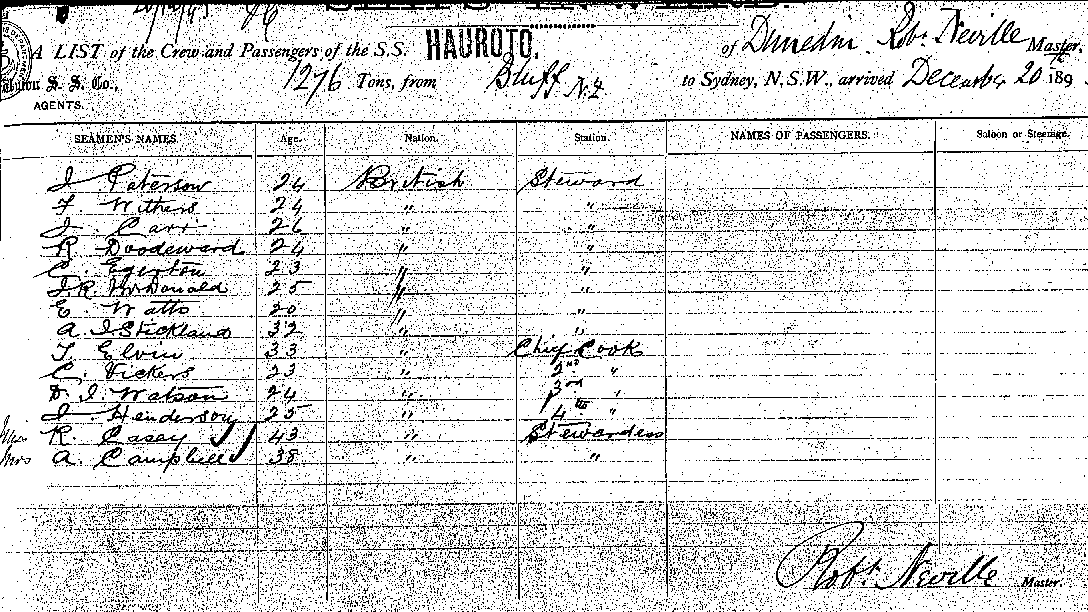 A LIST of the Crew and Passengers of the S.S. HAUROTO, of Dunedin Robt Neville Master,
S. S. Co., 1276 Tons, from Bluff N.Z to Sydney, N.S.W., arrived December 20 189
AGENTS.
SEAMEN'S NAMES. Age. Nation. Station. NAMES OF PASSENGERS. Saloon or Steerage.
J Peterson 24 British Steward
F Withers 24 " "
J Carr 26 " "
R Doodeward 24 " "
C. Egerton 23 " "
J R McDonald 25 " "
E. Watts 20 " "
A. J Stickland 32 " "
T Elvin 33 " Chief Cook
C. Vickers 23 " 2nd "
D. J. Watson 24 " 3rd "
J Henderson 25 " 4th "
Mrs R. Casey 43 " Stewardess
Mrs A. Campbell 38 " "
Robt Neville Master.